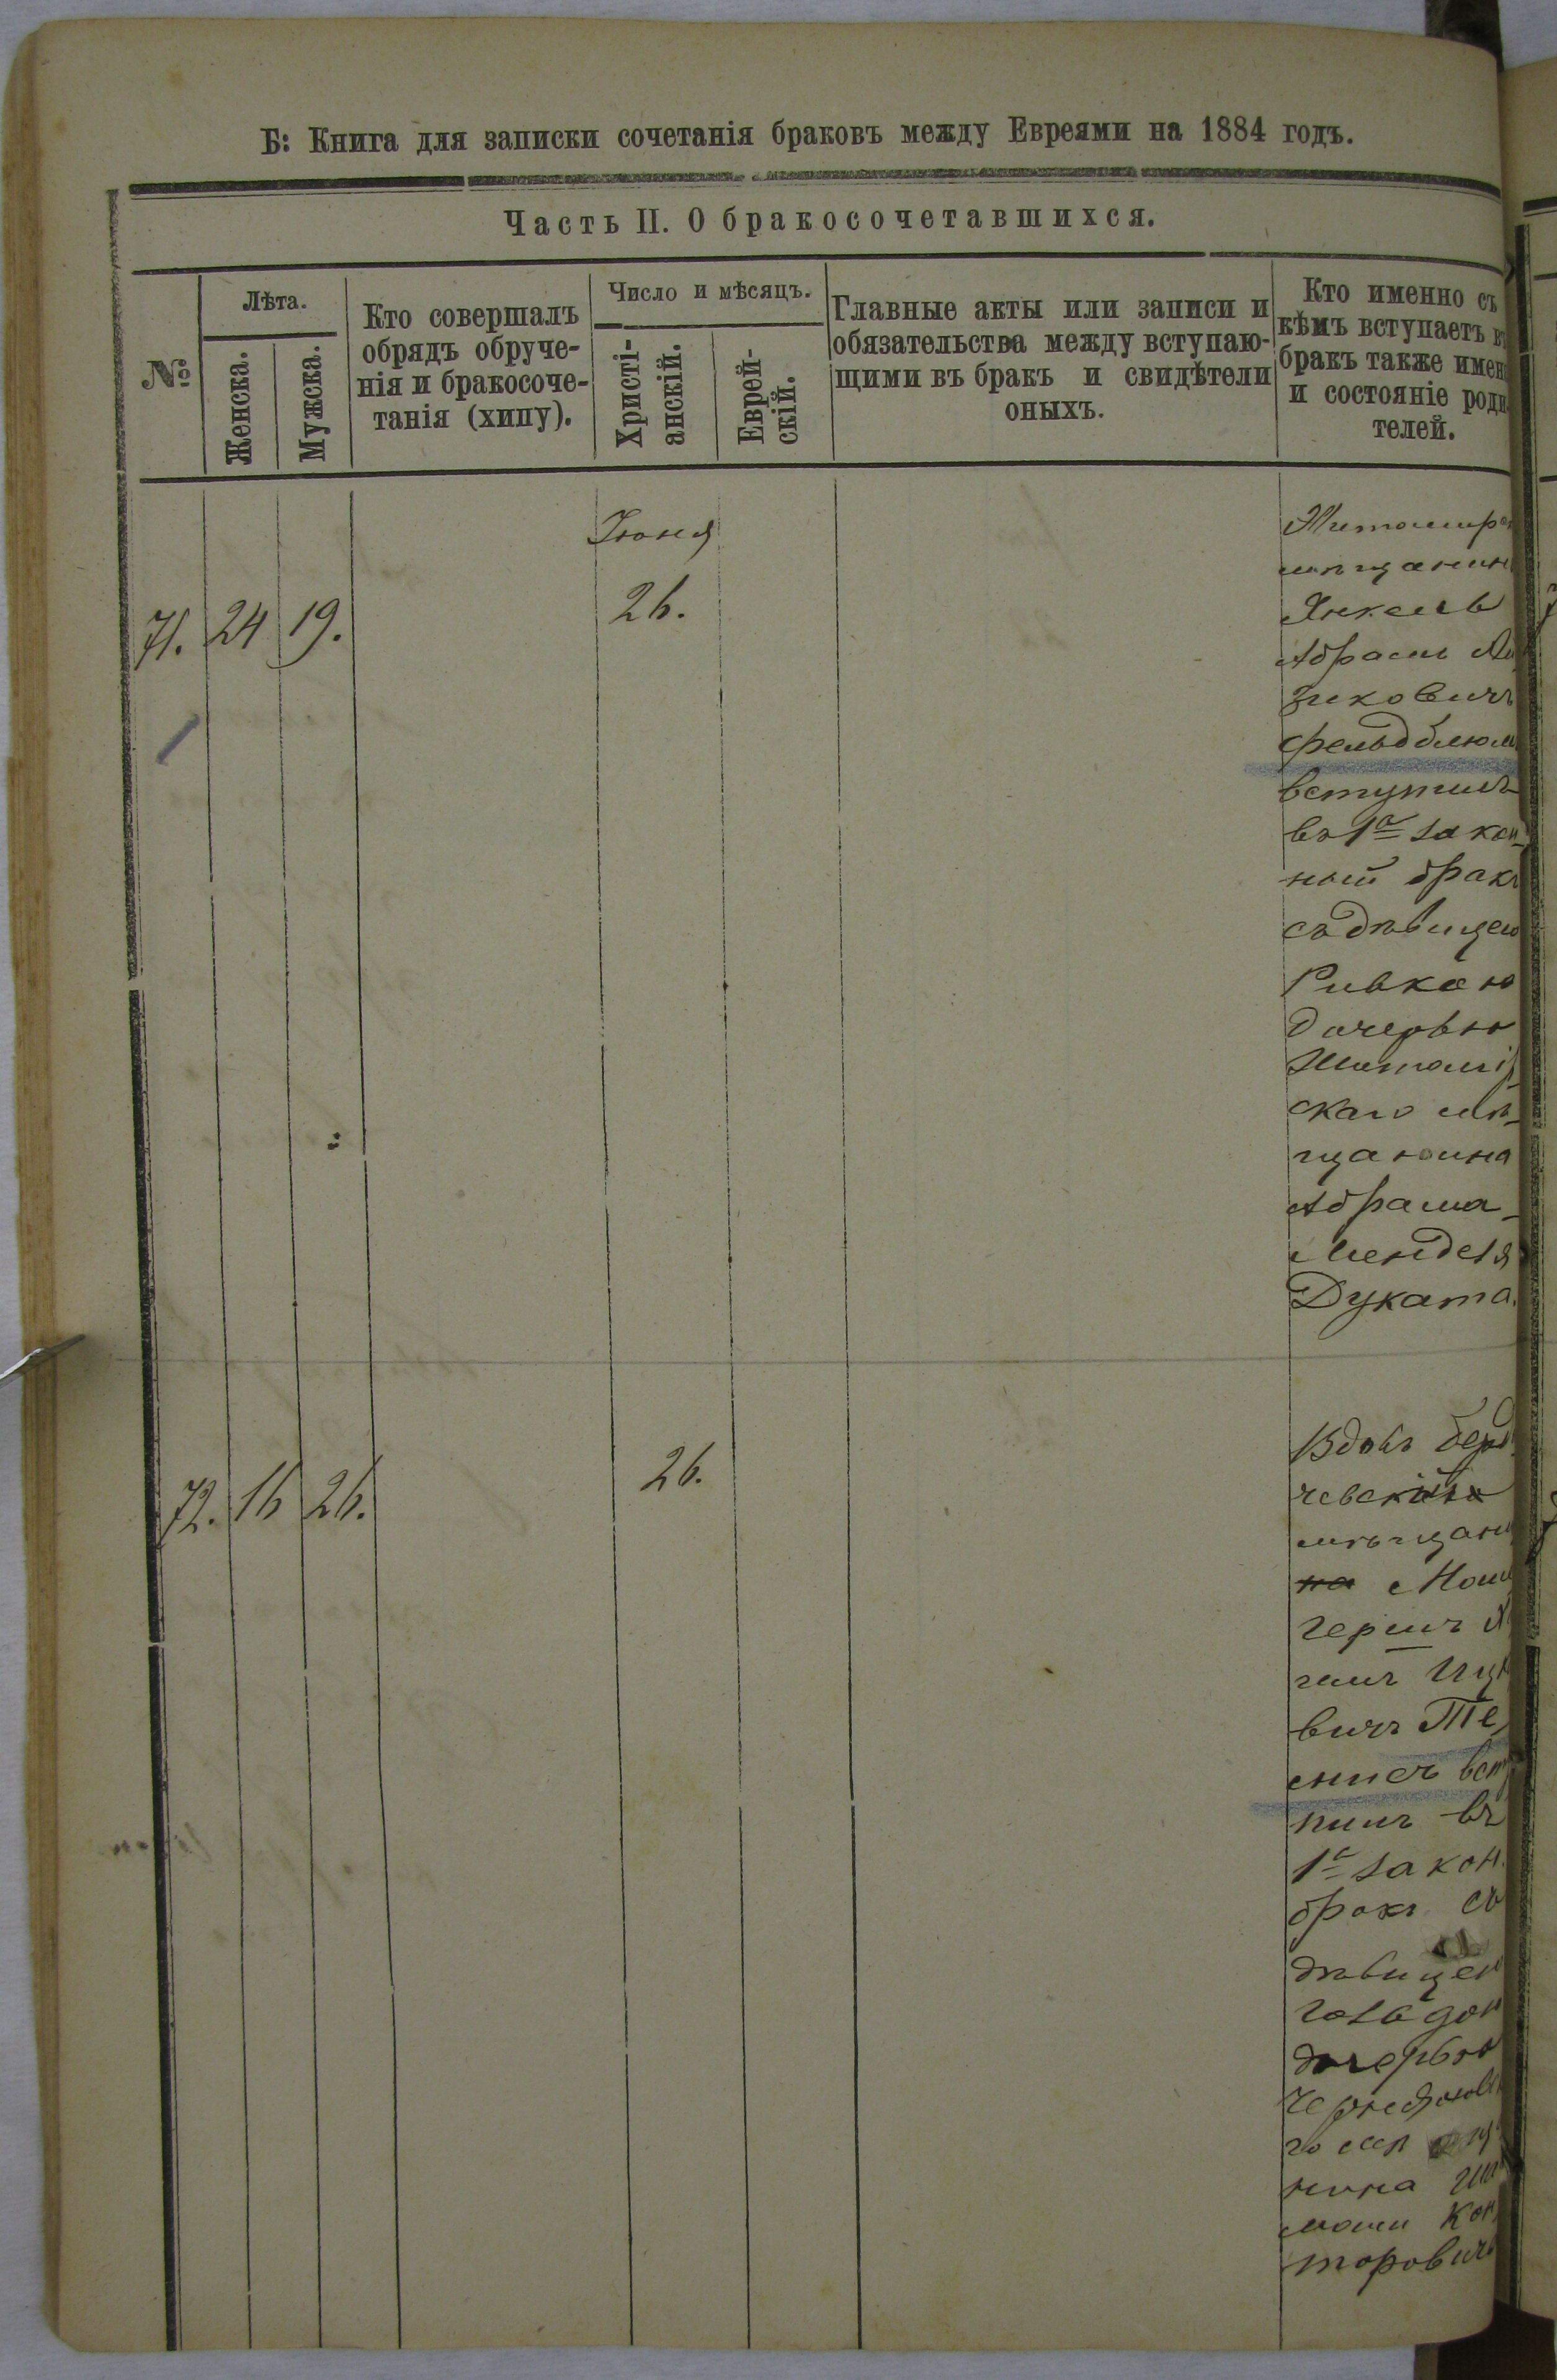 Б: Книга для записки сочетанія браковъ между Евреями на 1884 годъ.
Часть II. О бракосочетавшихся.
№
Лѣта.
Женска.
Мужска.
Кто совершалъ
обрядъ обруче-
нія и бракосоче-
танія (хипу).
Число и мѣсяцъ.
Христі-
анскій.
Еврей-
скій.
Главные акты или записи и
обязательства между вступаю-
щими въ бракъ и свидѣтели
оныхъ.
Кто именно съ
кѣмъ вступаетъ въ
бракъ также имен
и состояніе роди
телей.
Іюня
71. 24 19. 26.
Житомир
мѣщанин
Янкель
Абрамъ
зиковичъ
Фельдблюм
вступилъ
въ 1й закон-
ный бракъ
съ дѣвицею
Ривкою
дочерью
Житомір-
скаго мѣ-
щанина
Абрама-
Менделя
Дуката.
72. 16 26. 26.
Вдовъ берд
чевскій
мѣщани
на Мош
Гершъ
вичъ
вст
пилъ въ
1й закон.
бракъ съ
дѣвицею
дочерью
го
нина
Кон
торовича